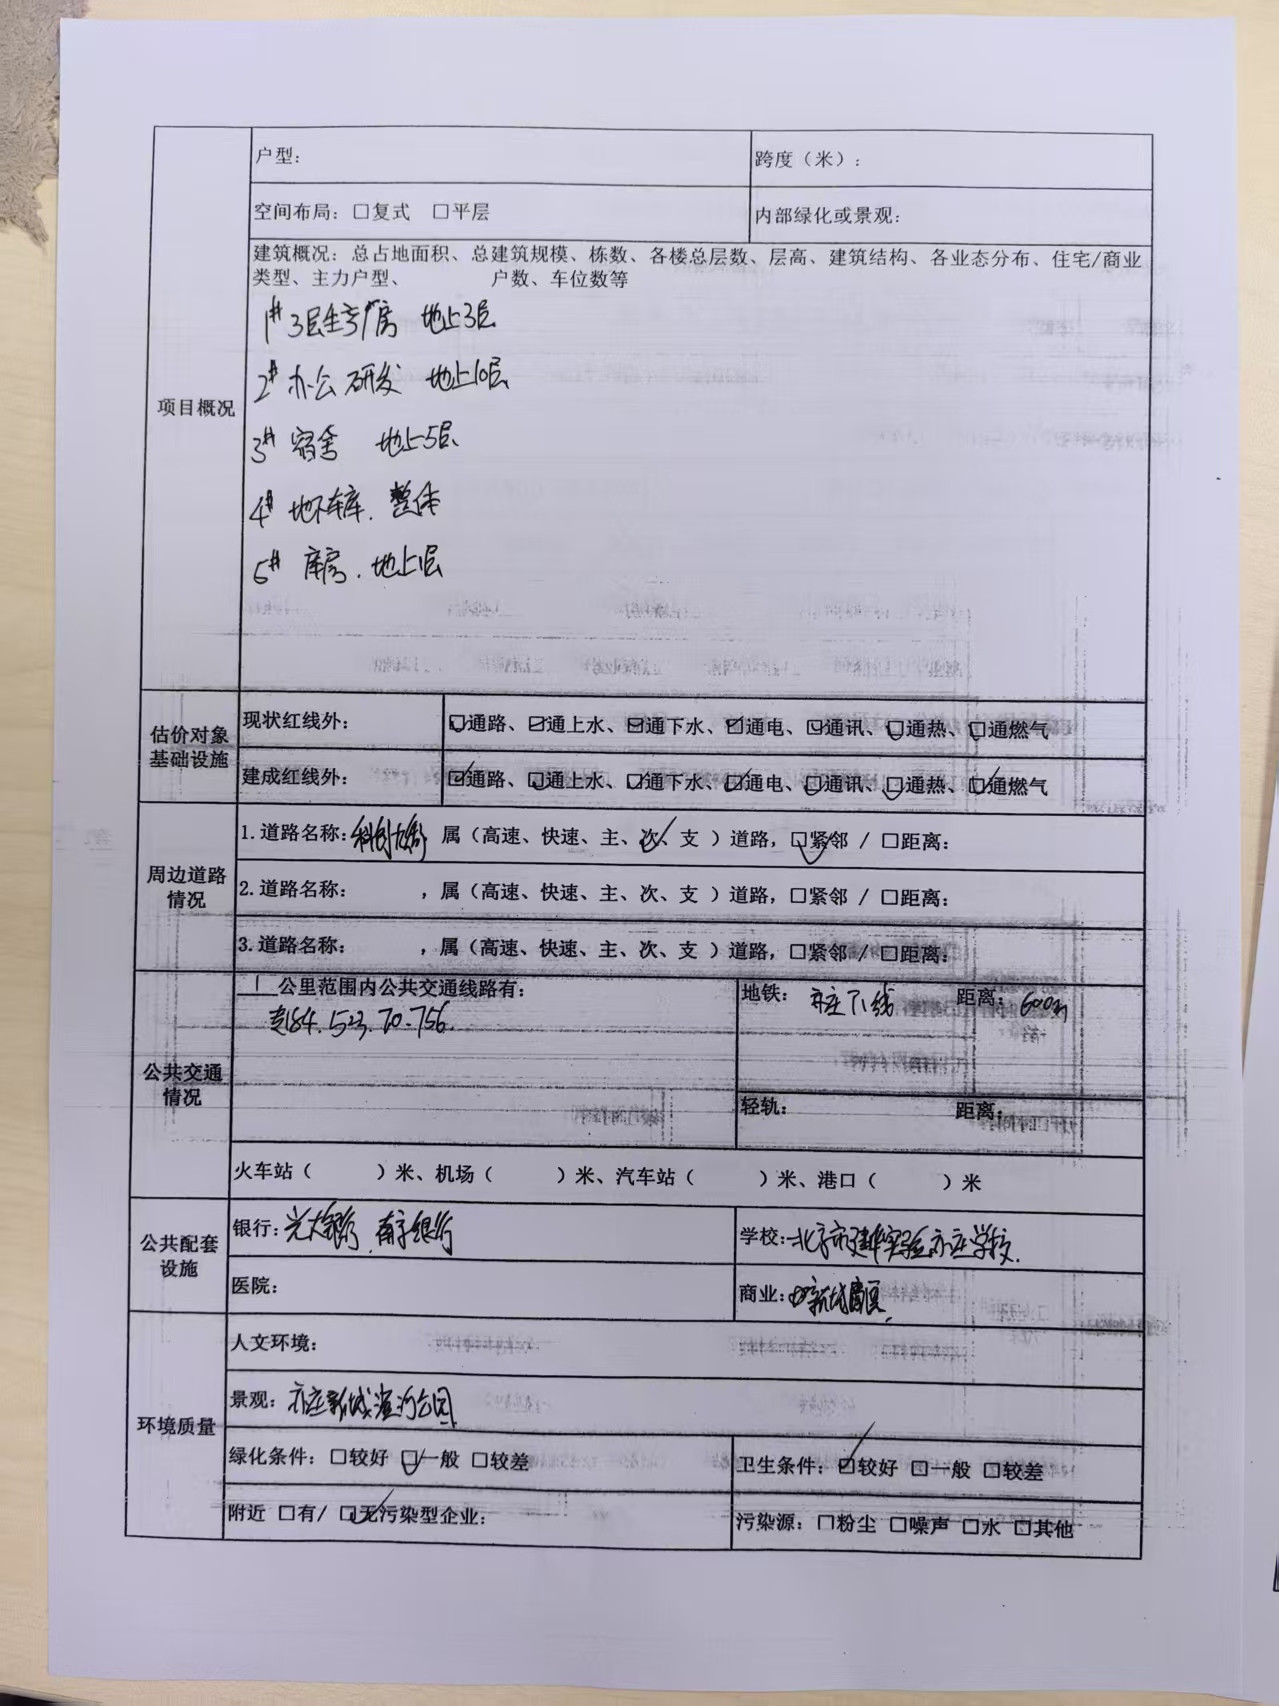 户型：
跨度（米）：
空间布局：□复式 □平层
内部绿化或景观：
项目概况
建筑概况：总占地面积、总建筑规模、栋数、各楼总层数、层高、建筑结构、各业态分布、住宅/商业
类型、主力户型、 户数、车位数等
1# 3层生产厂房 地上3层
2# 办公研发 地上10层
3# 宿舍 地上5层
4# 地下车库. 整体
5# 库房. 地上1层
估价对象
基础设施
现状红线外：
☑通路、☑通上水、☑通下水、☑通电、☑通讯、☑通热、☑通燃气
建成红线外：
☑通路、☑通上水、☑通下水、☑通电、☑通讯、☑通热、☑通燃气
周边道路
情况
1.道路名称：科创大街 属（高速、快速、主、次✓、支 ）道路，☑紧邻 / □距离：
2.道路名称： ，属（高速、快速、主、次、支 ）道路，□紧邻 / □距离：
3.道路名称： ，属（高速、快速、主、次、支 ）道路，□紧邻 / □距离：
公共交通
情况
1 公里范围内公共交通线路有：
专184. 523. 70. 756.
地铁： 亦庄T1线 距离：600m
轻轨： 距离：
火车站（ ）米、机场（ ）米、汽车站（ ）米、港口（ ）米
公共配套
设施
银行：光大银行、南京银行
学校：北京市建华实验亦庄学校.
医院：
商业：
环境质量
人文环境：
景观：亦庄新城滨河公园
绿化条件：□较好 ☑一般 □较差
卫生条件：☑较好 □一般 □较差
附近 □有/ ☑无污染型企业：
污染源：□粉尘 □噪声 □水 □其他